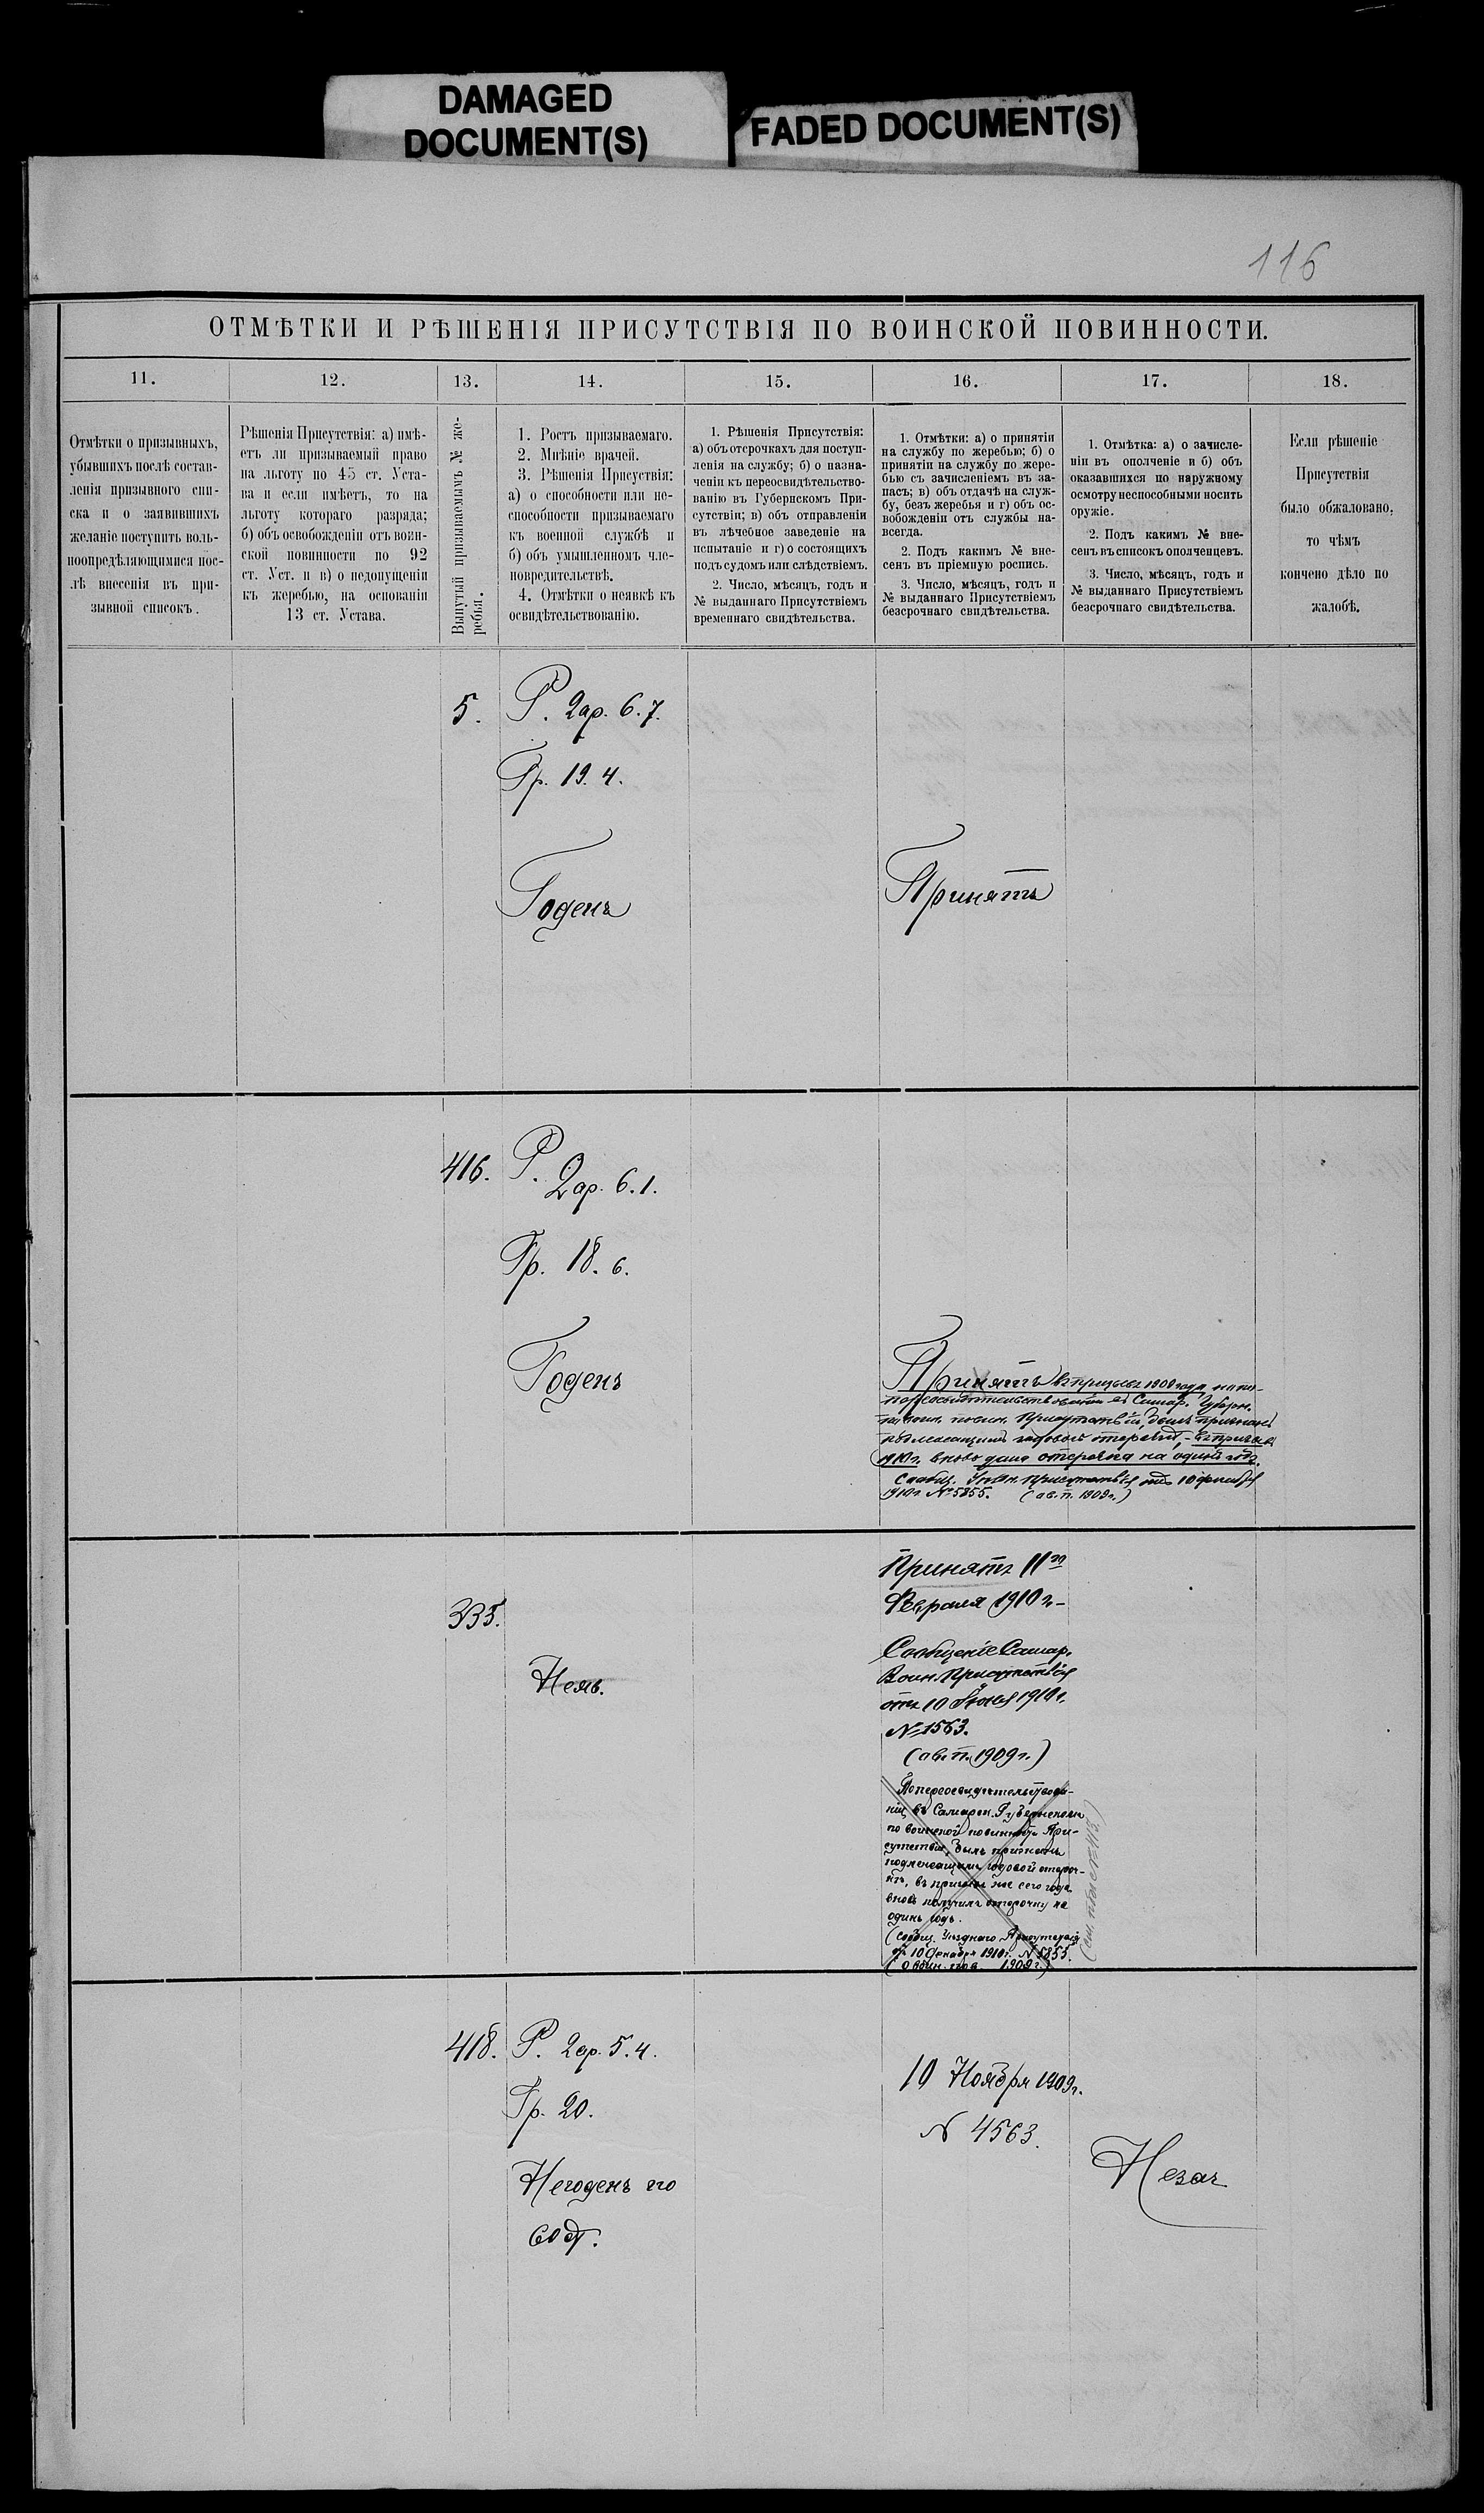 DAMAGED
DOCUMENT(S)
FADED DOCUMENT(S)
116
ОТМѢТКИ И РѢШЕНІЯ ПРИСУТСТВІЯ ПО ВОИНСКОЙ ПОВИННОСТИ.
11.
12.
13.
14.
15.
16.
17.
18.
Отмѣтки о призывныхъ,
убывшихъ послѣ состав-
ленія призывного спи-
ска и о заявившихъ
желаніе поступить воль-
ноопредѣляющимися пос-
лѣ внесенія въ при-
зывной списокъ.
Рѣшенія Присутствія: а) имѣ-
етъ ли призываемый право
на льготу по 45 ст. Уста-
ва и если имѣетъ, то на
льготу котораго разряда;
б) объ освобожденіи отъ воин-
ской повинности по 92
ст. Уст. и в) о недопущеніи
къ жеребью, на основаніи
13 ст. Устава.
Вынутый призываемымъ № же-
ребья.
1. Ростъ призываемаго.
2. Мнѣніе врачей.
3. Рѣшенія Присуствія:
а) о способности или не-
способности призываемаго
къ военной службѣ и
б) объ умышленномъ чле-
новредительствѣ.
4. Отмѣтки о неявкѣ къ
освидѣтельствованію.
1. Рѣшенія Присутствія:
а) объ отсрочкахъ для поступ-
ленія на службу; б) о назна-
ченіи къ переосвидѣтельство-
ванію въ Губернскомъ При-
сутствіи; в) объ отправленіи
въ лѣчебное заведеніе на
испытаніе и г) о состоящихъ
подъ судомъ или слѣдствіемъ.
2. Число, мѣсяцъ, годъ и
№ выданнаго Присутствіемъ
временнаго свидѣтельства.
1. Отмѣтки: а) о принятіи
на службу по жеребью; б) о
принятіи на службу по жере-
бью съ зачисленіемъ въ за-
пасъ; в) объ отдачѣ на служ-
бу, безъ жеребья и г) объ ос-
вобожденіи отъ службы на-
всегда.
2. Подъ какимъ № вне-
сенъ въ пріемную роспись.
3. Число, мѣсяцъ, годъ и
№ выданнаго Присутствіемъ
безсрочнаго свидѣтельства.
1. Отмѣтка: а) о зачисле-
ніи въ ополченіе и б) объ
оказавшихся по наружному
осмотру неспособными носить
оружіе.
2. Подъ какимъ № вне-
сенъ въ списокъ ополченцевъ.
3. Число, мѣсяцъ, годъ и
№ выданнаго Присутствіемъ
безсрочнаго свидѣтельства.
Если рѣшеніе
Присутствія
было обжаловано,
то чѣмъ
кончено дѣло по
жалобѣ.
5. Р. 2ар. 6. 7.
Гр. 19. 4.
Годенъ
Принятъ
416. Р. 2ар. 6. 1.
Гр. 18. 6.
Годенъ
Принятъ въ призывъ 1909 года, но по
переосвидѣтельствованіи въ Самар. Губерн.
по воин. повин. Присутствіи, былъ признанъ
подлежащимъ годовой отсрочкѣ, - въ призывъ
1910 г. вновь дана отсрочка на одинъ годъ.
Сообщ. Уѣздн. Присутствія отъ 10 декабря
1910 г. № 5855. (ов. п. 1909 г.)
335.
Неяв.
Принятъ 11го
Февраля 1910 г.-
Сообщеніе Самар.
Воин. Присутствія
отъ 10 Іюня 1910 г.
№ 1563.
(ов. п. 1909 г.)
По переосвидѣтельствова-
ніи въ Самарск. Губернскомъ
по воинской повинности При-
сутствіи, былъ признанъ
подлежащимъ годовой отсроч-
кѣ, въ призывъ же сего года
вновь получилъ отсрочку на
одинъ годъ.
(Сообщ. Уѣзднаго Присутствія
отъ 10 Декабря 1910 г. № 5855.
(О воин. пов. 1909 г.)
418. Р. 2ар. 5. 4.
Гр. 20.
Негоденъ по
60 ст.
10 Ноября 1909 г.
№ 4563.
Незач